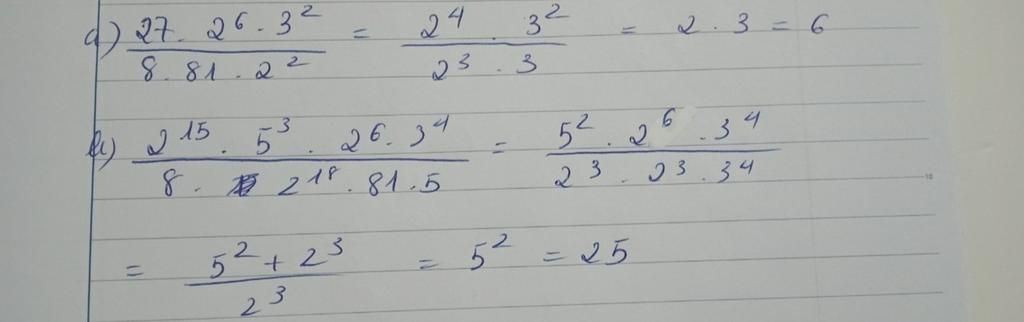 a) 27 . 2^6 . 3^2 / 8 . 81 . 2^2 = 2^4 . 3^2 / 2^3 . 3 = 2 . 3 = 6
b) 2^15 . 5^3 . 2^6 . 3^4 / 8 . 2^18 . 81 . 5 = 5^2 . 2^6 . 3^4 / 2^3 . 2^3 . 3^4
= 5^2 + 2^3 / 2^3 = 5^2 = 25